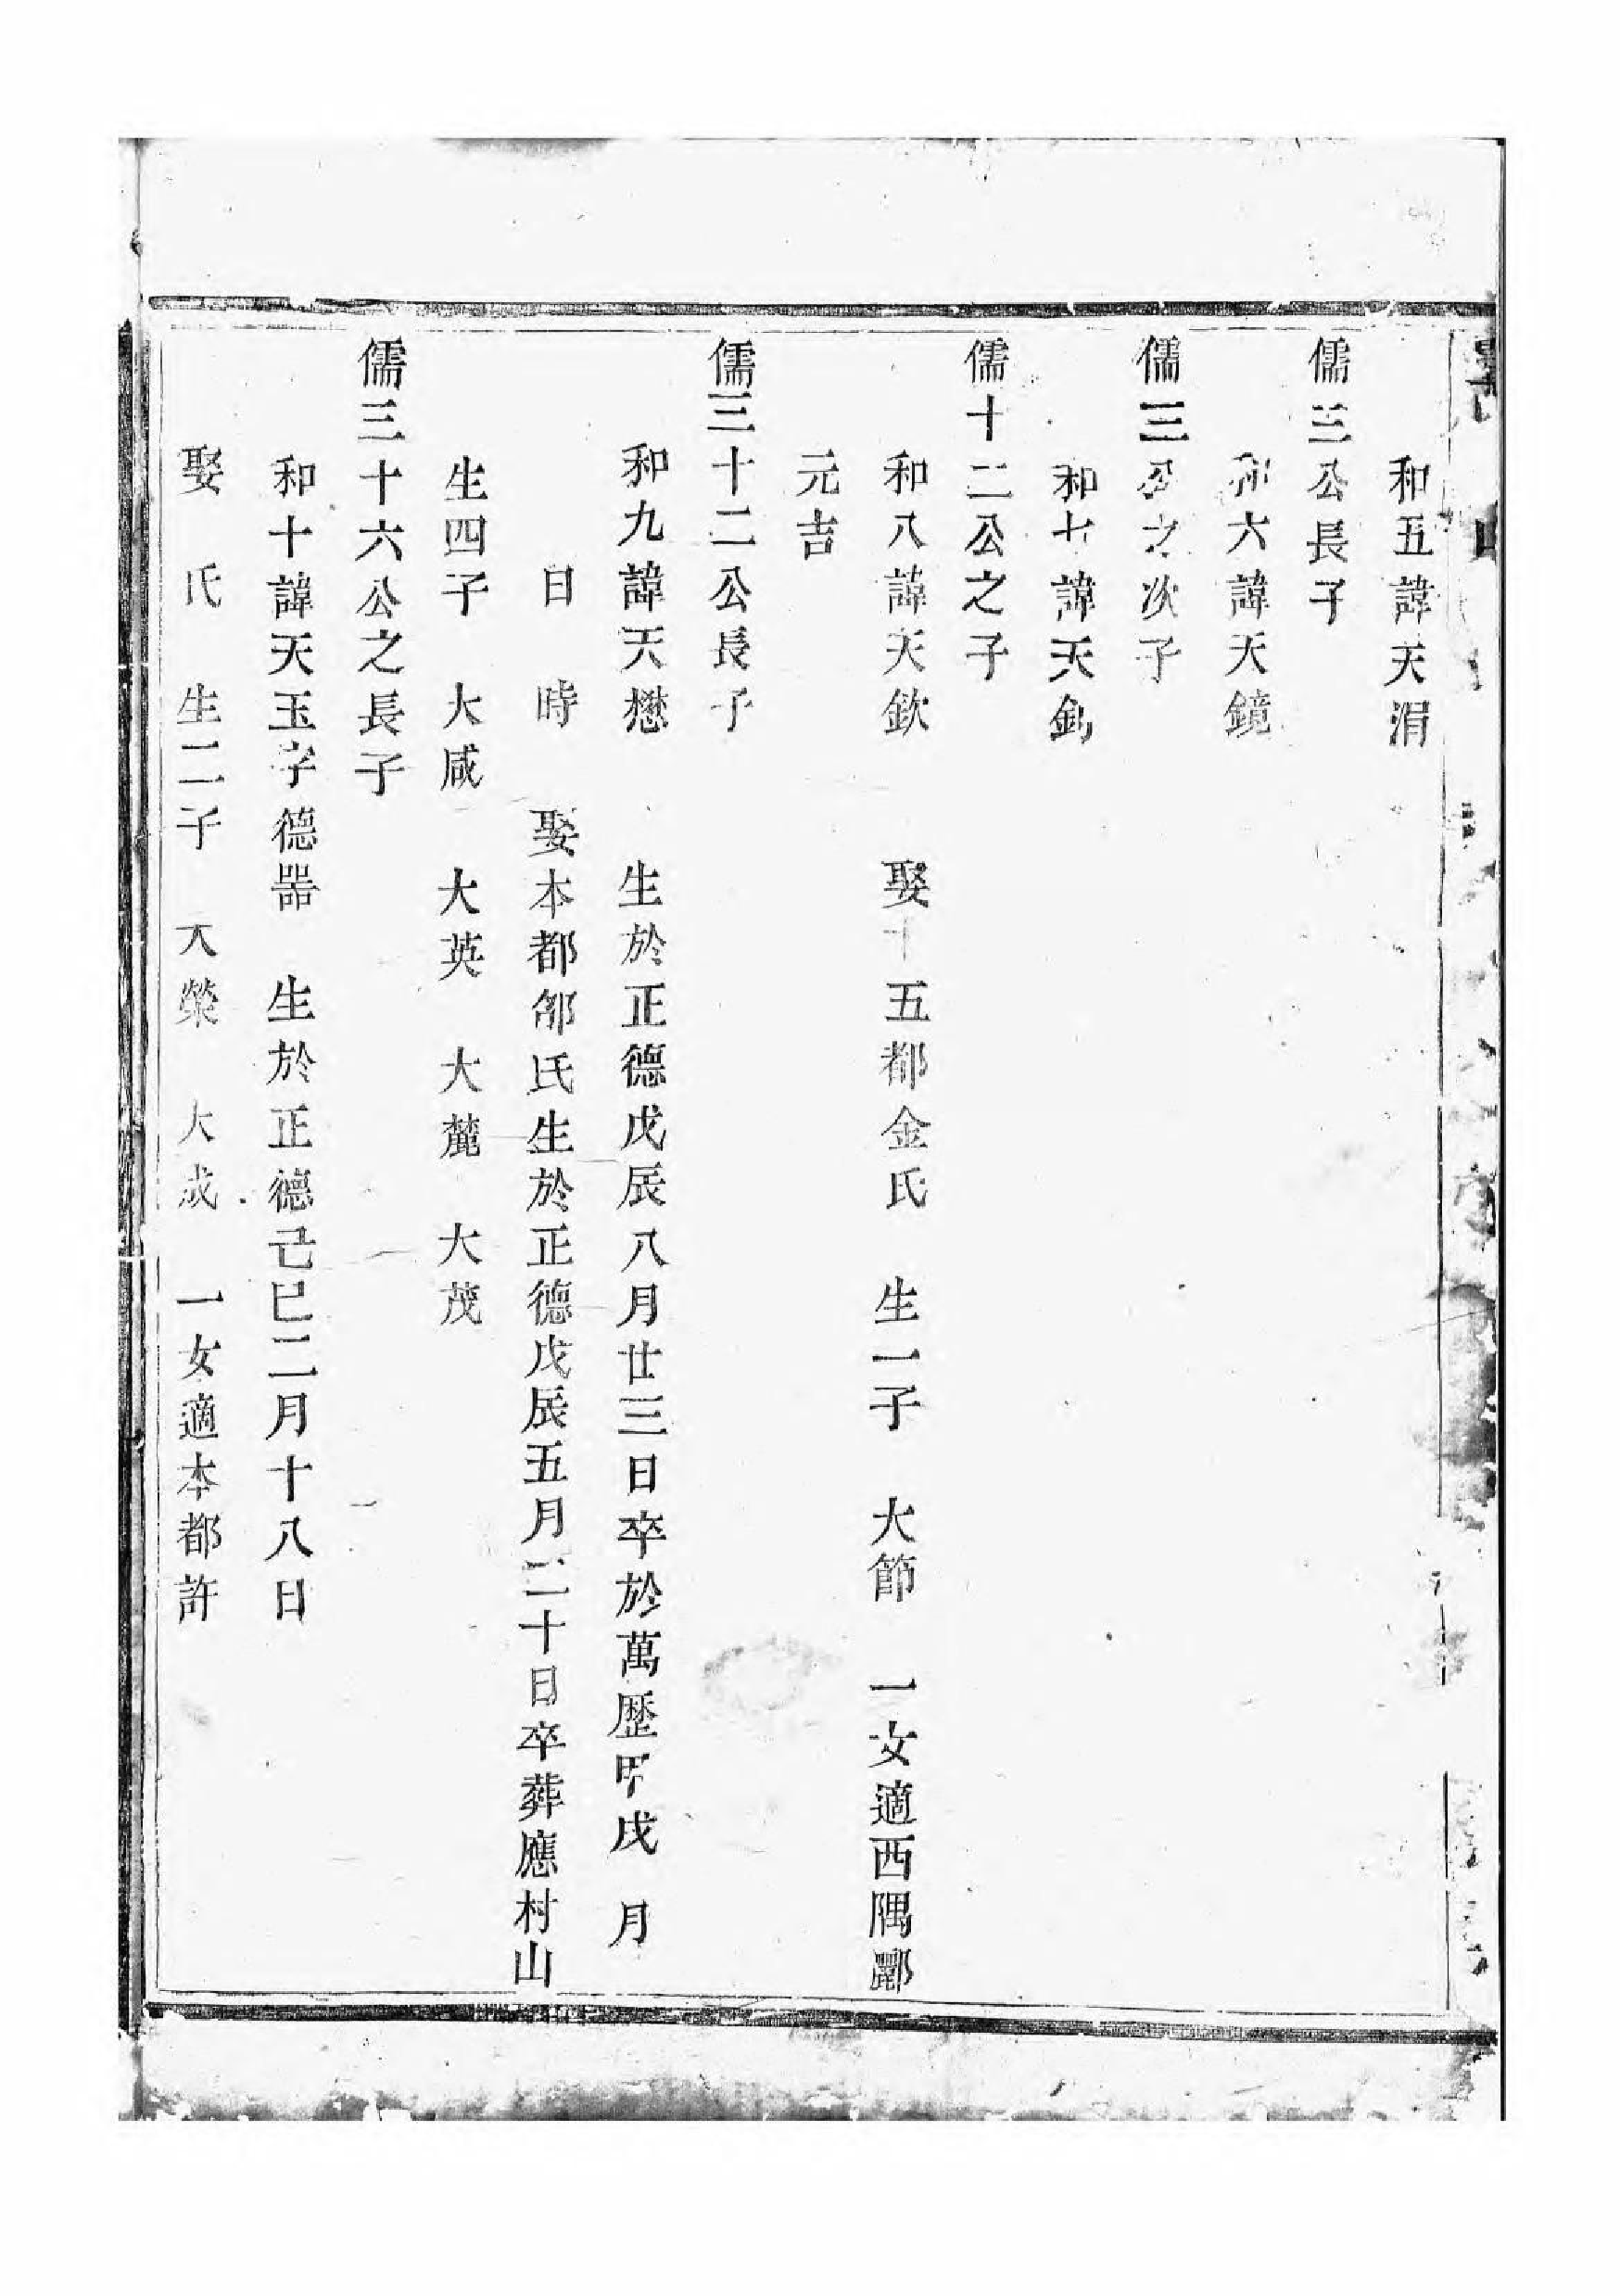 和五諱天涓
儒三公長子
和六諱天鏡
儒三公之次子
和七諱天釣
儒十二公之子
和八諱天欽 娶十五都金氏 生一子 大節 一女適西隅酈
元吉
儒三十二公長子
和九諱天懋 生於正德戊辰八月廿三日卒於萬歷甲戌 月
日 時 娶本都邵氏生於正德戊辰五月二十日卒葬應村山
生四子 大咸 大英 大麓 大茂
儒三十六公之長子
和十諱天玉字德器 生於正德己巳二月十八日
娶 氏 生二子 大榮 大成 一女適本都許